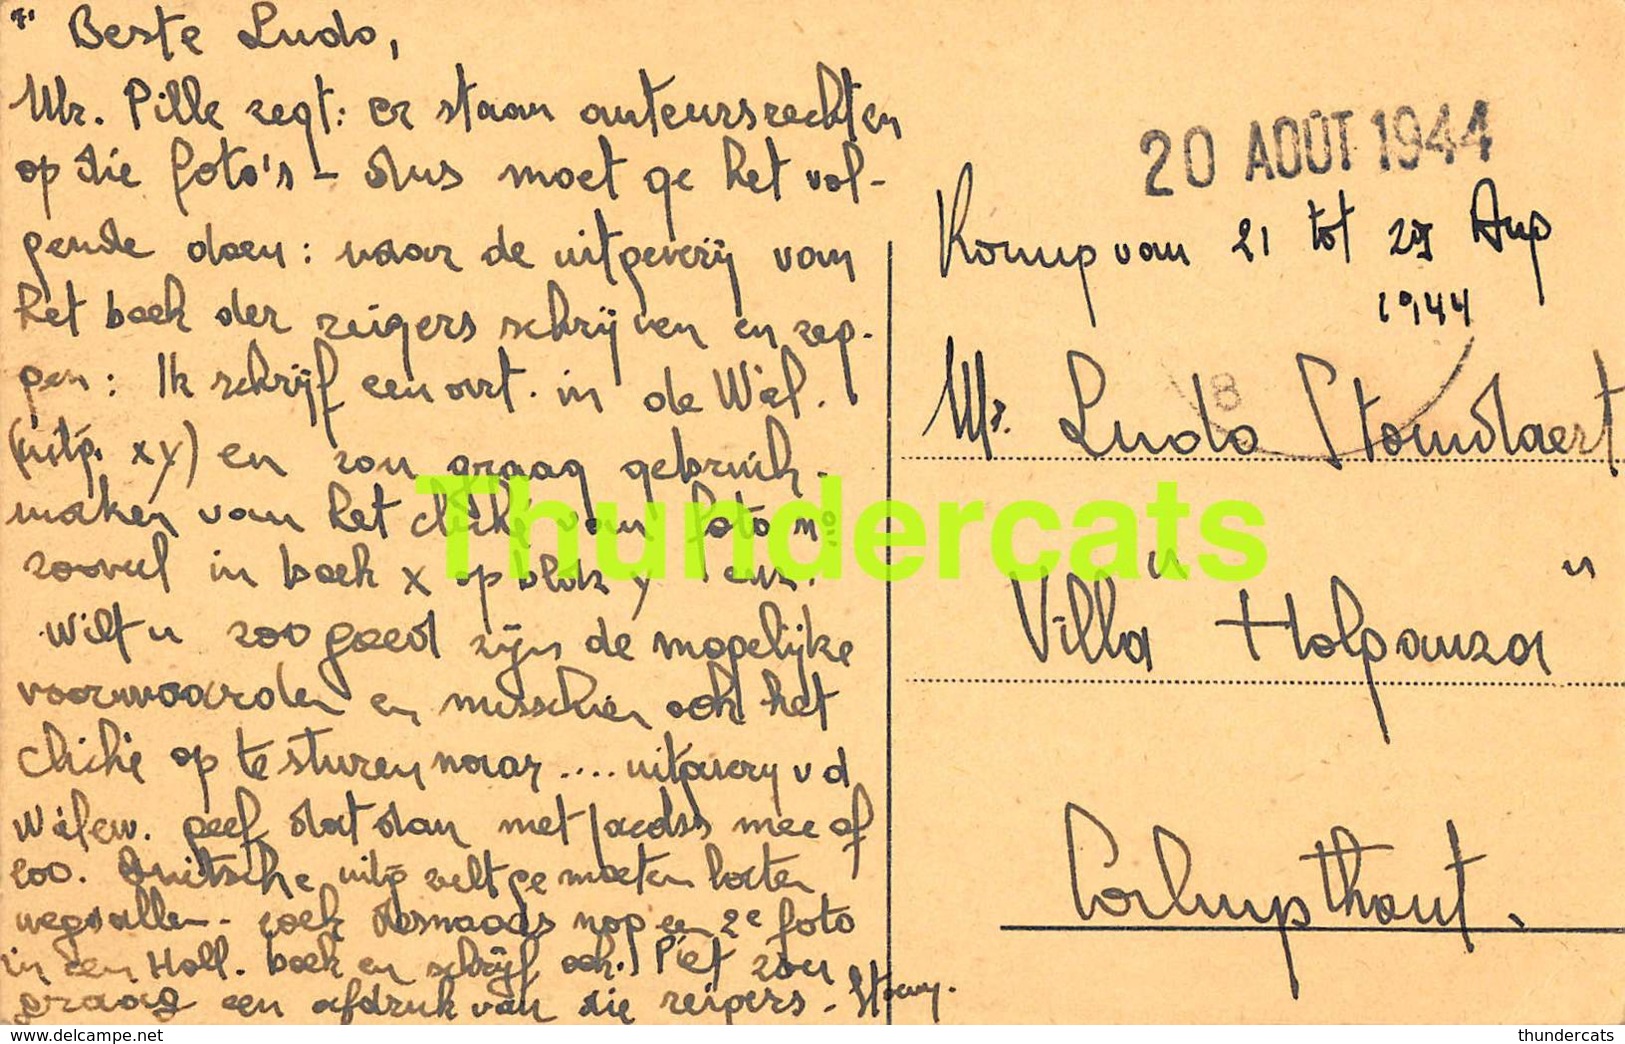 Beste Ludo,
Mr. Pille zegt: er staan auteursrechten
op die foto's - dus moet ge het vol-
gende doen: naar de uitgeverij van
het boek der reigers schrijven en zeg-
gen: Ik schrijf een art. in de Wiel.
(uitg. xy) en zou graag gebruik
maken van het cliché van foto no
zooveel in boek x op bldz y enz.
Wilt u zoo goed zijn de mogelijke
voorwaarden en misschien ook het
cliché op te sturen naar .... uitgeverij v d
Wielew. geef dat dan met Jacobs mee of
zoo. Duitsche uitg zult ge moeten laten
wegvallen - zoek desnoods nog een 2e foto
in een Holl. boek en schrijf ook. Piet zou
graag een afdruk van die reigers -
20 AOÛT 1944
Kamp van 21 tot 27 Aug
1944
8
Mr. Ludo
Villa "Holpanza"
Calmpthout.
Thundercats
delcampe.net
thundercats